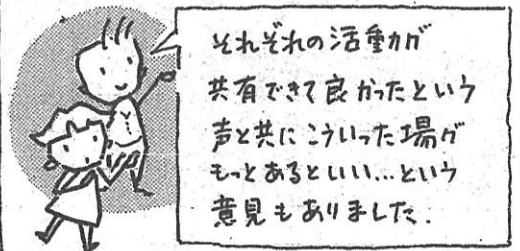 それぞれの活動が
共有できて良かったという
声と共にこういった場が
もっとあるといい…という
意見もありました.